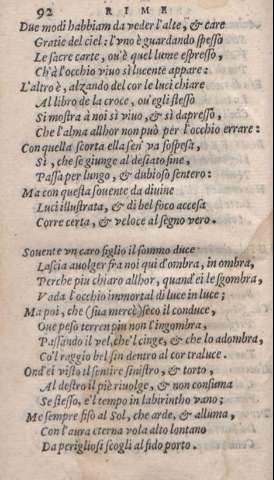 92 RIME
Due modi habbiam da veder l'alte, & care
Gratie del ciel: l'vno è guardando spesso
Le sacre carte, ou'è quel lume espresso,
Ch'à l'occhio viuo sì lucente appare:
L'altro è, alzando del cor le luci chiare
Al libro de la croce, ou'egli stesso
Si mostra à noi sì viuo, & sì dapresso,
Che l'alma allhor non può per l'occhio errare:
Con quella scorta ella sen' va sospesa,
Sì, che se giunge al desiato fine,
Passa per lungo, & dubioso sentero:
Ma con questa souente da diuine
Luci illustrata, & di bel foco accesa
Corre certa, & veloce al segno vero.
Souente vn caro figlio il sommo duce
Lascia auolger fra noi qui d'ombra, in ombra,
Perche piu chiaro allhor, quand'ei le sgombra,
Vada l'occhio immortal di luce in luce;
Ma poi, che (sua mercè) seco il conduce,
Oue peso terren piu non l'ingombra,
Passando il vel, che'l cinge, & che lo adombra,
Co'l raggio bel sin dentro al cor traluce.
Ond'ei visto il sentire sinistro, & torto,
Al destro il piè riuolge, & non consuma
Se stesso, e'l tempo in labirintho vano;
Me sempre fiso al Sol, che arde, & alluma,
Con l'aura eterna vola alto lontano
Da perigliosi scogli al fido porto.